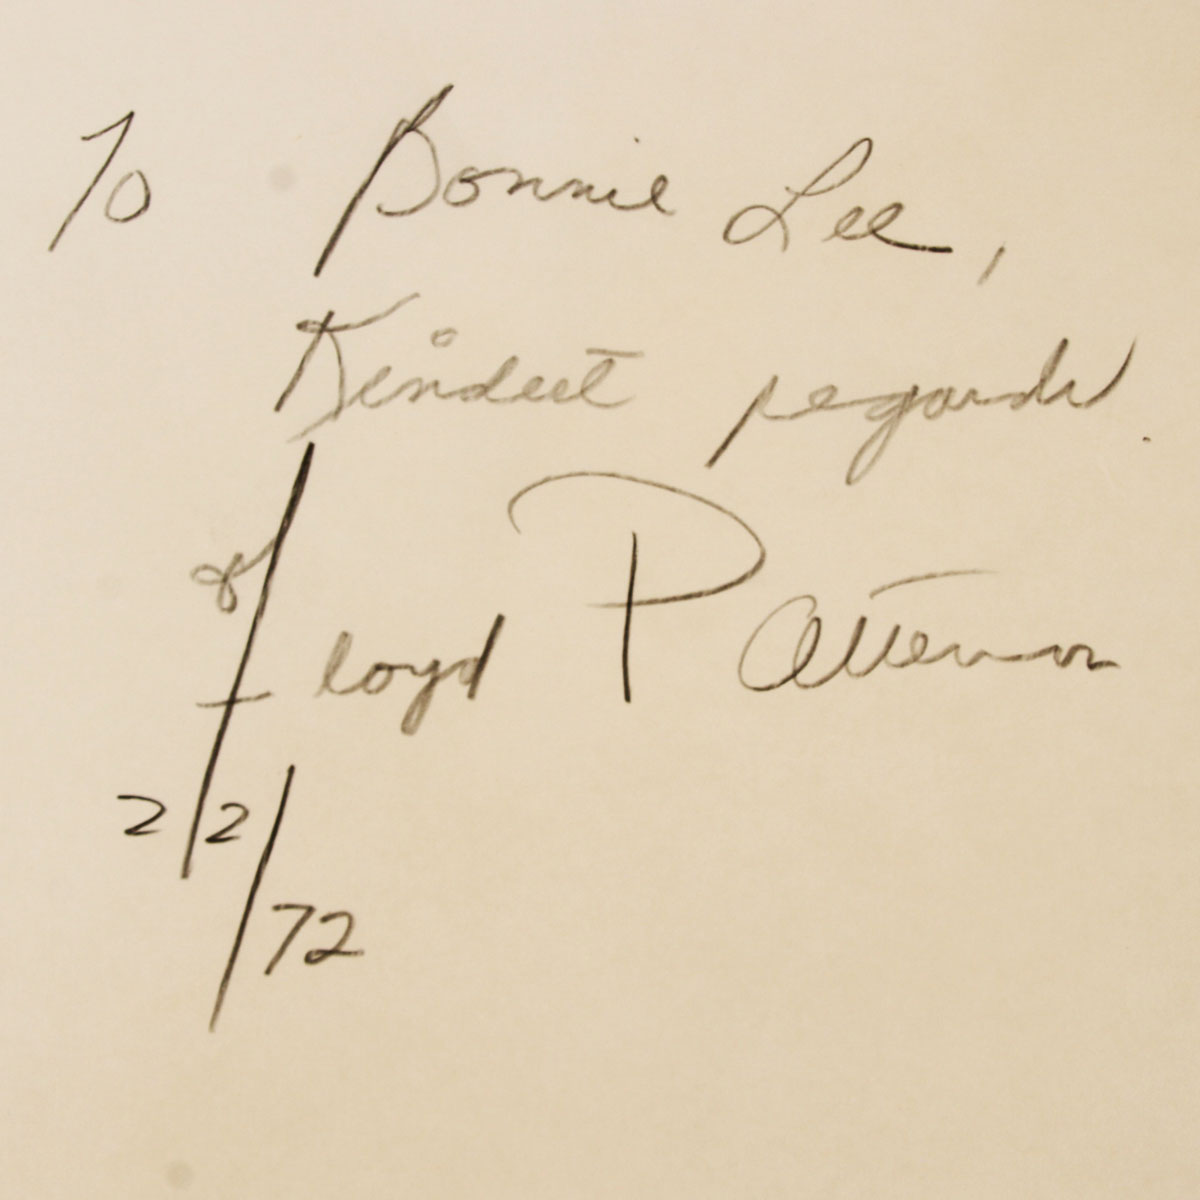 To Bonnie Lee,
Kindest regards
Floyd Patterson
2/2/72